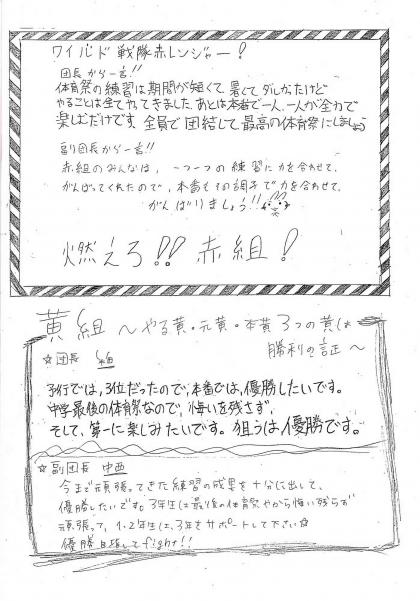 ワイルド戦隊赤レンジャー!
団長から一言!!
体育祭の練習は期間が短くて暑くてダルかったけど
やることは全てやってきました。あとは本番で一人一人が全力で
楽しむだけです。全員で団結して最高の体育祭にしましょう
副団長から一言!!
赤組のみんなは、一つ一つの練習に力を合わせて、
がんばってくれたので、本番もその調子で力を合わせて、
がんばりましょう!!
燃えろ!! 赤組!
黄組 ~やる黄・元黄・本黄 3つの黄は
勝利の証~
☆団長
予行では、3位だったので、本番では、優勝したいです。
中学最後の体育祭なので、悔いを残さず、
そして、第一に楽しみたいです。狙うは優勝です。
☆副団長 中西
今まで頑張ってきた練習の成果を十分に出して、
優勝したいです。3年生は最後の体育祭やから悔い残らず
頑張って、1・2年生は、3年をサポートして下さい☆
優勝目指してfight!!